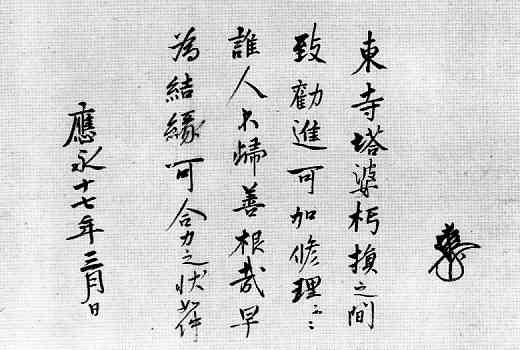 東寺塔婆朽損之間
致勸進可加修理云々
誰人不歸善根哉早
為結緣可合力之状如件
應永十七年三月日